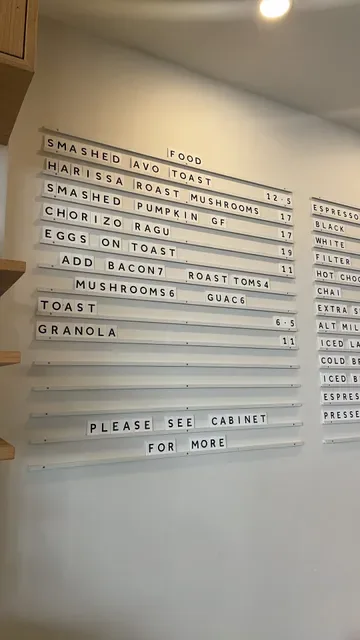 FOOD
SMASHED AVO TOAST 12.5
HARISSA ROAST MUSHROOMS 17
SMASHED PUMPKIN GF 17
CHORIZO RAGU 19
EGGS ON TOAST 11
ADD BACON7 ROAST TOMS4
MUSHROOMS6 GUAC6
TOAST 6.5
GRANOLA 11
PLEASE SEE CABINET
FOR MORE
ESPRESSO
BLACK
WHITE
FILTER
HOT
CHAI
EXTRA
ALT
ICED
COLD
ICED